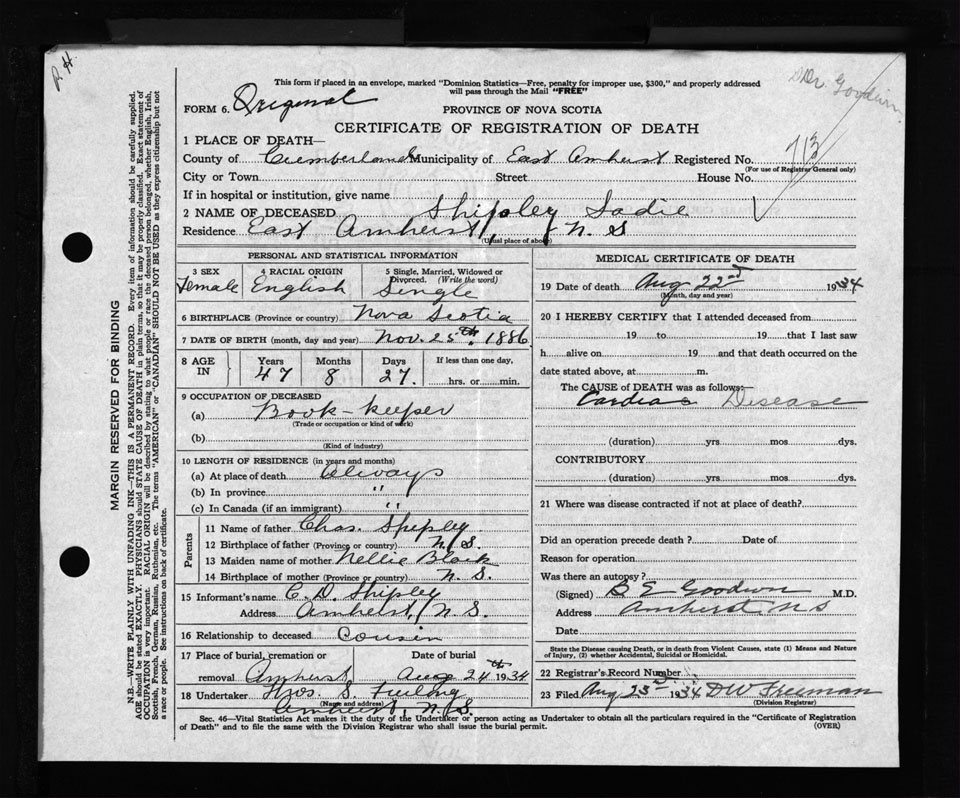 P. H.
Dr. Goodwin
This form if placed in an envelope, marked "Dominion Statistics—Free, penalty for improper use, $300," and properly addressed
will pass through the Mail "FREE"
FORM 6. Original
PROVINCE OF NOVA SCOTIA
CERTIFICATE OF REGISTRATION OF DEATH
1 PLACE OF DEATH—
County of Cumberland Municipality of East Amherst Registered No. 713
(For use of Registrar General only)
City or Town Street House No.
If in hospital or institution, give name
2 NAME OF DECEASED Shipley Sadie
Residence East Amherst, N. S
(Usual place of abode)
PERSONAL AND STATISTICAL INFORMATION
3 SEX 4 RACIAL ORIGIN 5 Single, Married, Widowed or
Divorced. (Write the word)
Female English Single
6 BIRTHPLACE (Province or country) Nova Scotia
7 DATE OF BIRTH (month, day and year) Nov. 25th. 1886
8 AGE IN Years Months Days If less than one day,
47 8 27. hrs. or min.
9 OCCUPATION OF DECEASED
(a) Book-keeper
(Trade or occupation or kind of work)
(b)
(Kind of industry)
10 LENGTH OF RESIDENCE (in years and months)
(a) At place of death always
(b) In province "
(c) In Canada (if an immigrant) "
Parents
11 Name of father Chas. Shipley
12 Birthplace of father (Province or country) N. S.
13 Maiden name of mother Nellie Black
14 Birthplace of mother (Province or country) N. S.
15 Informant's name C. D. Shipley
Address Amherst, N. S.
16 Relationship to deceased Cousin
17 Place of burial, cremation or Date of burial
removal Amherst Aug 24th 1934
18 Undertaker Thos. S.
(Name and address)
Amherst, N. S.
MEDICAL CERTIFICATE OF DEATH
19 Date of death Aug 22nd 1934
(Month, day and year)
20 I HEREBY CERTIFY that I attended deceased from
19 to 19 that I last saw
h alive on 19 and that death occurred on the
date stated above, at m.
The CAUSE of DEATH was as follows:—
Cardiac Disease
(duration) yrs mos dys.
CONTRIBUTORY
(duration) yrs. mos. dys.
21 Where was disease contracted if not at place of death?
Did an operation precede death? Date of
Reason for operation
Was there an autopsy?
(Signed) B E Goodwin M.D.
Address Amherst N S
Date
State the Disease causing Death, or in death from Violent Causes, state (1) Means and Nature
of Injury, (2) whether Accidental, Suicidal or Homicidal.
22 Registrar's Record Number
23 Filed Aug 23rd 1934 D W Freeman
(Division Registrar)
Sec. 46—Vital Statistics Act makes it the duty of the Undertaker or person acting as Undertaker to obtain all the particulars required in the "Certificate of Registration
of Death" and to file the same with the Division Registrar who shall issue the burial permit.
(OVER)
MARGIN RESERVED FOR BINDING
N.B.—WRITE PLAINLY WITH UNFADING INK—THIS IS A PERMANENT RECORD. Every item of information should be carefully supplied.
AGE should be stated EXACTLY. PHYSICIANS should STATE CAUSE OF DEATH in plain terms, so that it may be properly classified. Exact statement of
OCCUPATION is very important. RACIAL ORIGIN will be described by stating to what people or race the deceased person belonged, whether English, Irish,
Scottish, French, German, Russian, Ruthenian, etc. The terms "AMERICAN" or "CANADIAN" SHOULD NOT BE USED as they express citizenship but not
a race or people. See instructions on back of certificate.